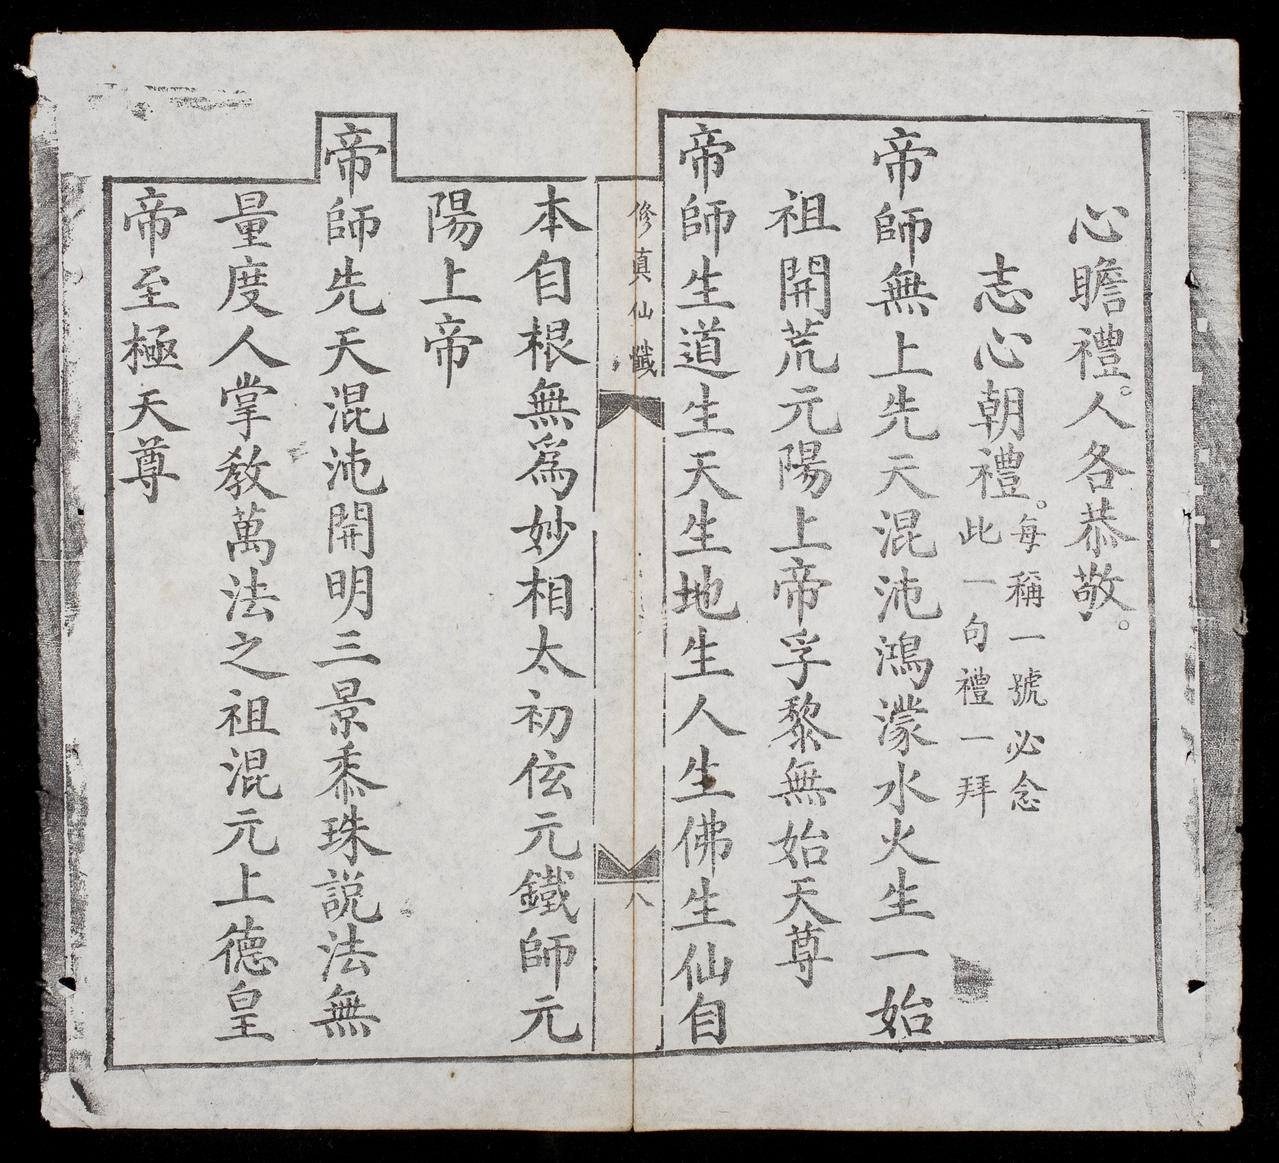 心瞻禮。人各恭敬。
志心朝禮。每稱一號必念
此一句禮一拜
帝師無上先天混沌鴻濛水火生一始
祖開荒元陽上帝孚黎無始天尊
帝師生道生天生地生人生佛生仙自
修真仙懺
八
本自根無為妙相太初伭元鐵師元
陽上帝
帝師先天混沌開明三景黍珠說法無
量度人掌教萬法之祖混元上德皇
帝至極天尊